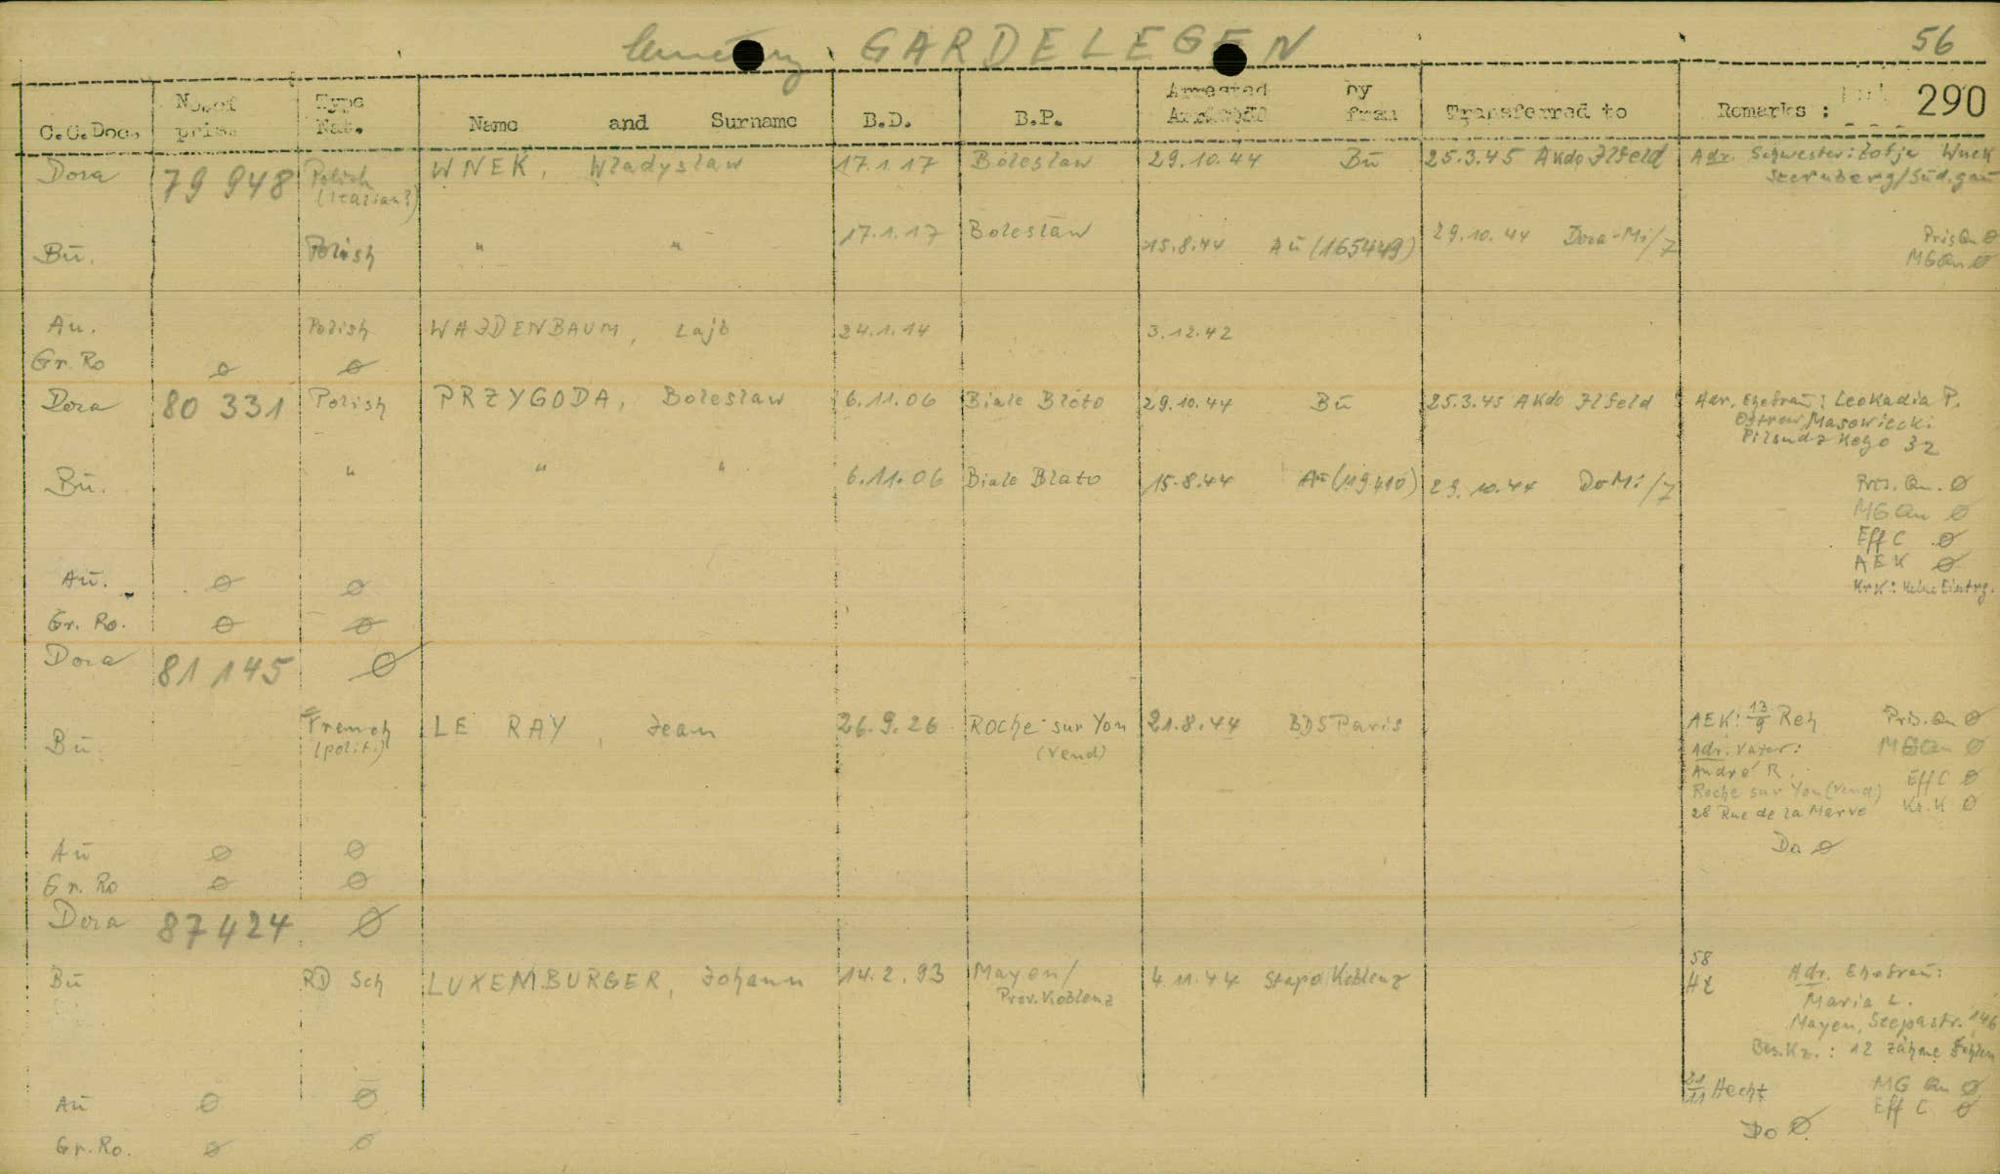 Cemetery GARDELEGEN 56
C.C.Doc. No. of pris. Type Nat. Name and Surname B.D. B.P. Arrested by from Transferred to Remarks : 290
Dora 79 948 Polish (Italian?) WNEK, Wladyslaw 17.1.17 Boleslaw 29.10.44 Bu 25.3.45 AKdo Ilfeld Adr. Schwester: Zofja Wnek
Sternberg/Süd.gau
Bu. Polish " " 17.1.17 Boleslaw 15.8.44 Au (165449) 29.10.44 Dora-Mi/7 Pris Qu Ø
MG Qu Ø
Au. Polish WAJDENBAUM, Lajb 24.1.14 3.12.42
Gr. Ro Ø Ø
Dora 80 331 Polish PRZYGODA, Boleslaw 6.11.06 Biale Bloto 29.10.44 Bu 25.3.45 AKdo Ilfeld Adr. Ehefrau: Leokadia P.
Ostrow Masowiecki
Pilsudzkego 32
Bu. " " " 6.11.06 Biale Blato 15.8.44 Au (119410) 29.10.44 DoMi/7 Pris. Qu. Ø
MG Qu Ø
Eff C Ø
AEK Ø
KrK: Keine Eintrg.
Au. Ø Ø
Gr. Ro. Ø Ø
Dora 81 145 Ø
Bu. French (polit.) LE RAY, Jean 26.9.26 Roche sur Yon (Vend) 21.8.44 BDS Paris AEK: 13/9 Reh Pris. Qu Ø
Adr. Vater: MG Qu Ø
André R. Eff C Ø
Roche sur Yon (Vend) Kr.K Ø
28 Rue de la Merve
Do Ø
Au Ø Ø
Gr. Ro Ø Ø
Dora 87424 Ø
Bu RD Sch LUXEMBURGER, Johann 14.2.93 Mayen/ Prov. Koblenz 4.11.44 Stapo Koblenz 58 Adr. Ehefrau:
Maria L.
Mayen, 146
Bes.Kz.: 12 Zähne fehlen
21/11 Hecht MG Qu Ø
Eff C Ø
Au Ø Ø
Do Ø
Gr. Ro. Ø Ø